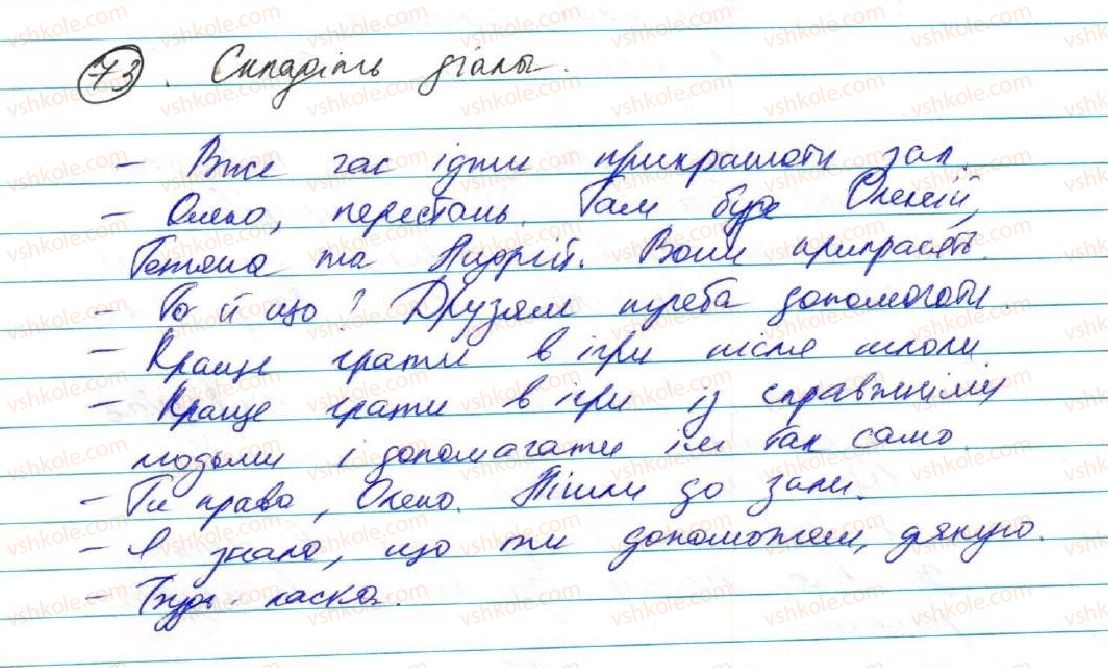 73. Складіть діалог.
- Вже час їдти прикрашати зал.
- Олено, перестань. Там буде Олексій,
Тетяна та Андрій. Вони прикрасять.
- То й що? Друзям треба допомогати.
- Краще грати в ігри після школи.
- Краще грати в ігри із справжніми
людьми і допомагати їм так само.
- Ти права, Олено. Пішли до зали.
- Я знала, що ти допоможеш, дякую.
- Будь-ласка.
vshkole.com